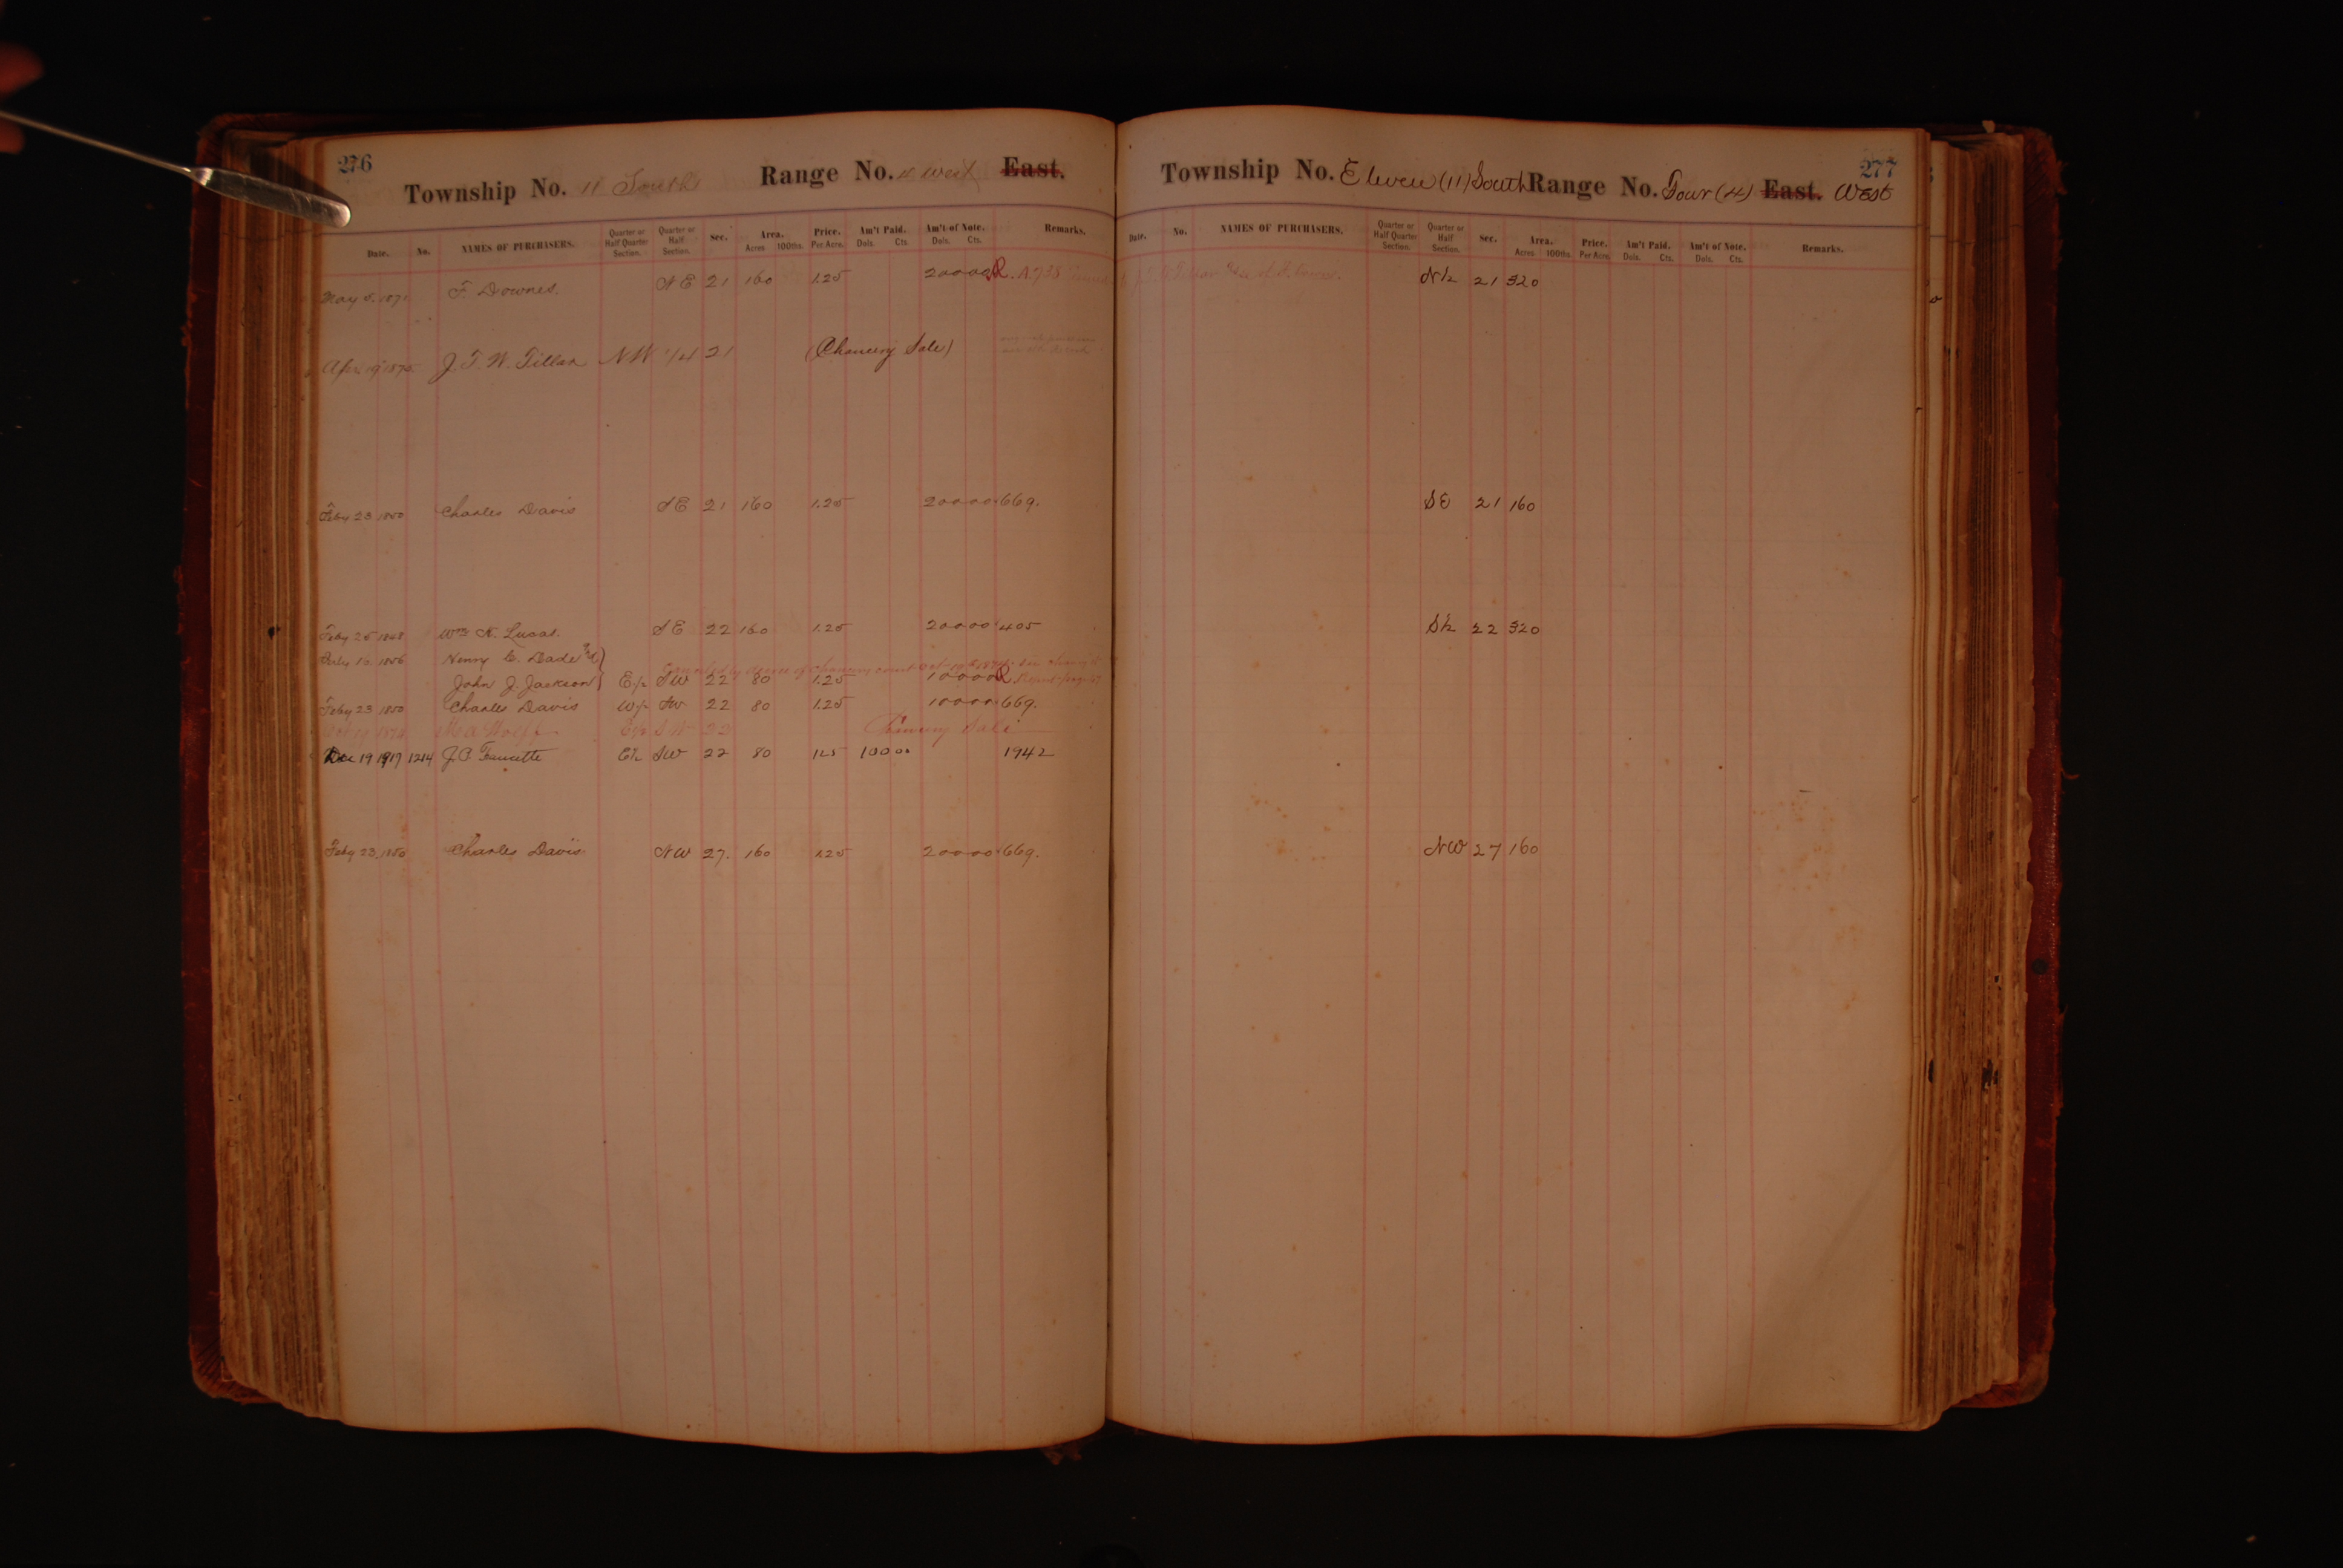 276
Township No. 11 South Range No. 4 West East.
Date. No. NAMES OF PURCHASERS. Quarter or Half Quarter Section. Quarter or Half Section. Sec. Area. Acres 100ths. Price. Per Acre. Am't Paid. Dols. Cts. Am't of Note. Dols. Cts. Remarks.
May 5, 1871 F. Downes. NE 21 160 1.25 200 00 R.
Apr. 19 J. T. W. Tillar NW 1/4 21 (Chancery Sale)
Feby 23 1850 Charles Davis SE 21 160 1.25 200 00 669.
Feby 25 1848 Wm N. Lucas. SE 22 160 1.25 200 00 405
July 10 1856 Henry C. Dade
Cancelled by decree of Chancery court
John J. Jackson E/2 SW 22 80 1.25 100 00 R
Feby 23 1850 Charles Davis W/2 SW 22 80 1.25 100 00 669.
M. A. Wolff E/2 SW 22 Chancery Sale
Dec 19 1917 1214 J. C. Faucette E1/2 SW 22 80 1.25 100 00 1942
Feby 23, 1850 Charles Davis NW 27. 160 1.25 200 00 669.
277
Township No. Eleven (11) South Range No. Four (4) East. West
Date. No. NAMES OF PURCHASERS. Quarter or Half Quarter Section. Quarter or Half Section. Sec. Area. Acres 100ths. Price. Per Acre. Am't Paid. Dols. Cts. Am't of Note. Dols. Cts. Remarks.
N1/2 21 320
SE 21 160
S1/2 22 320
NW 27 160